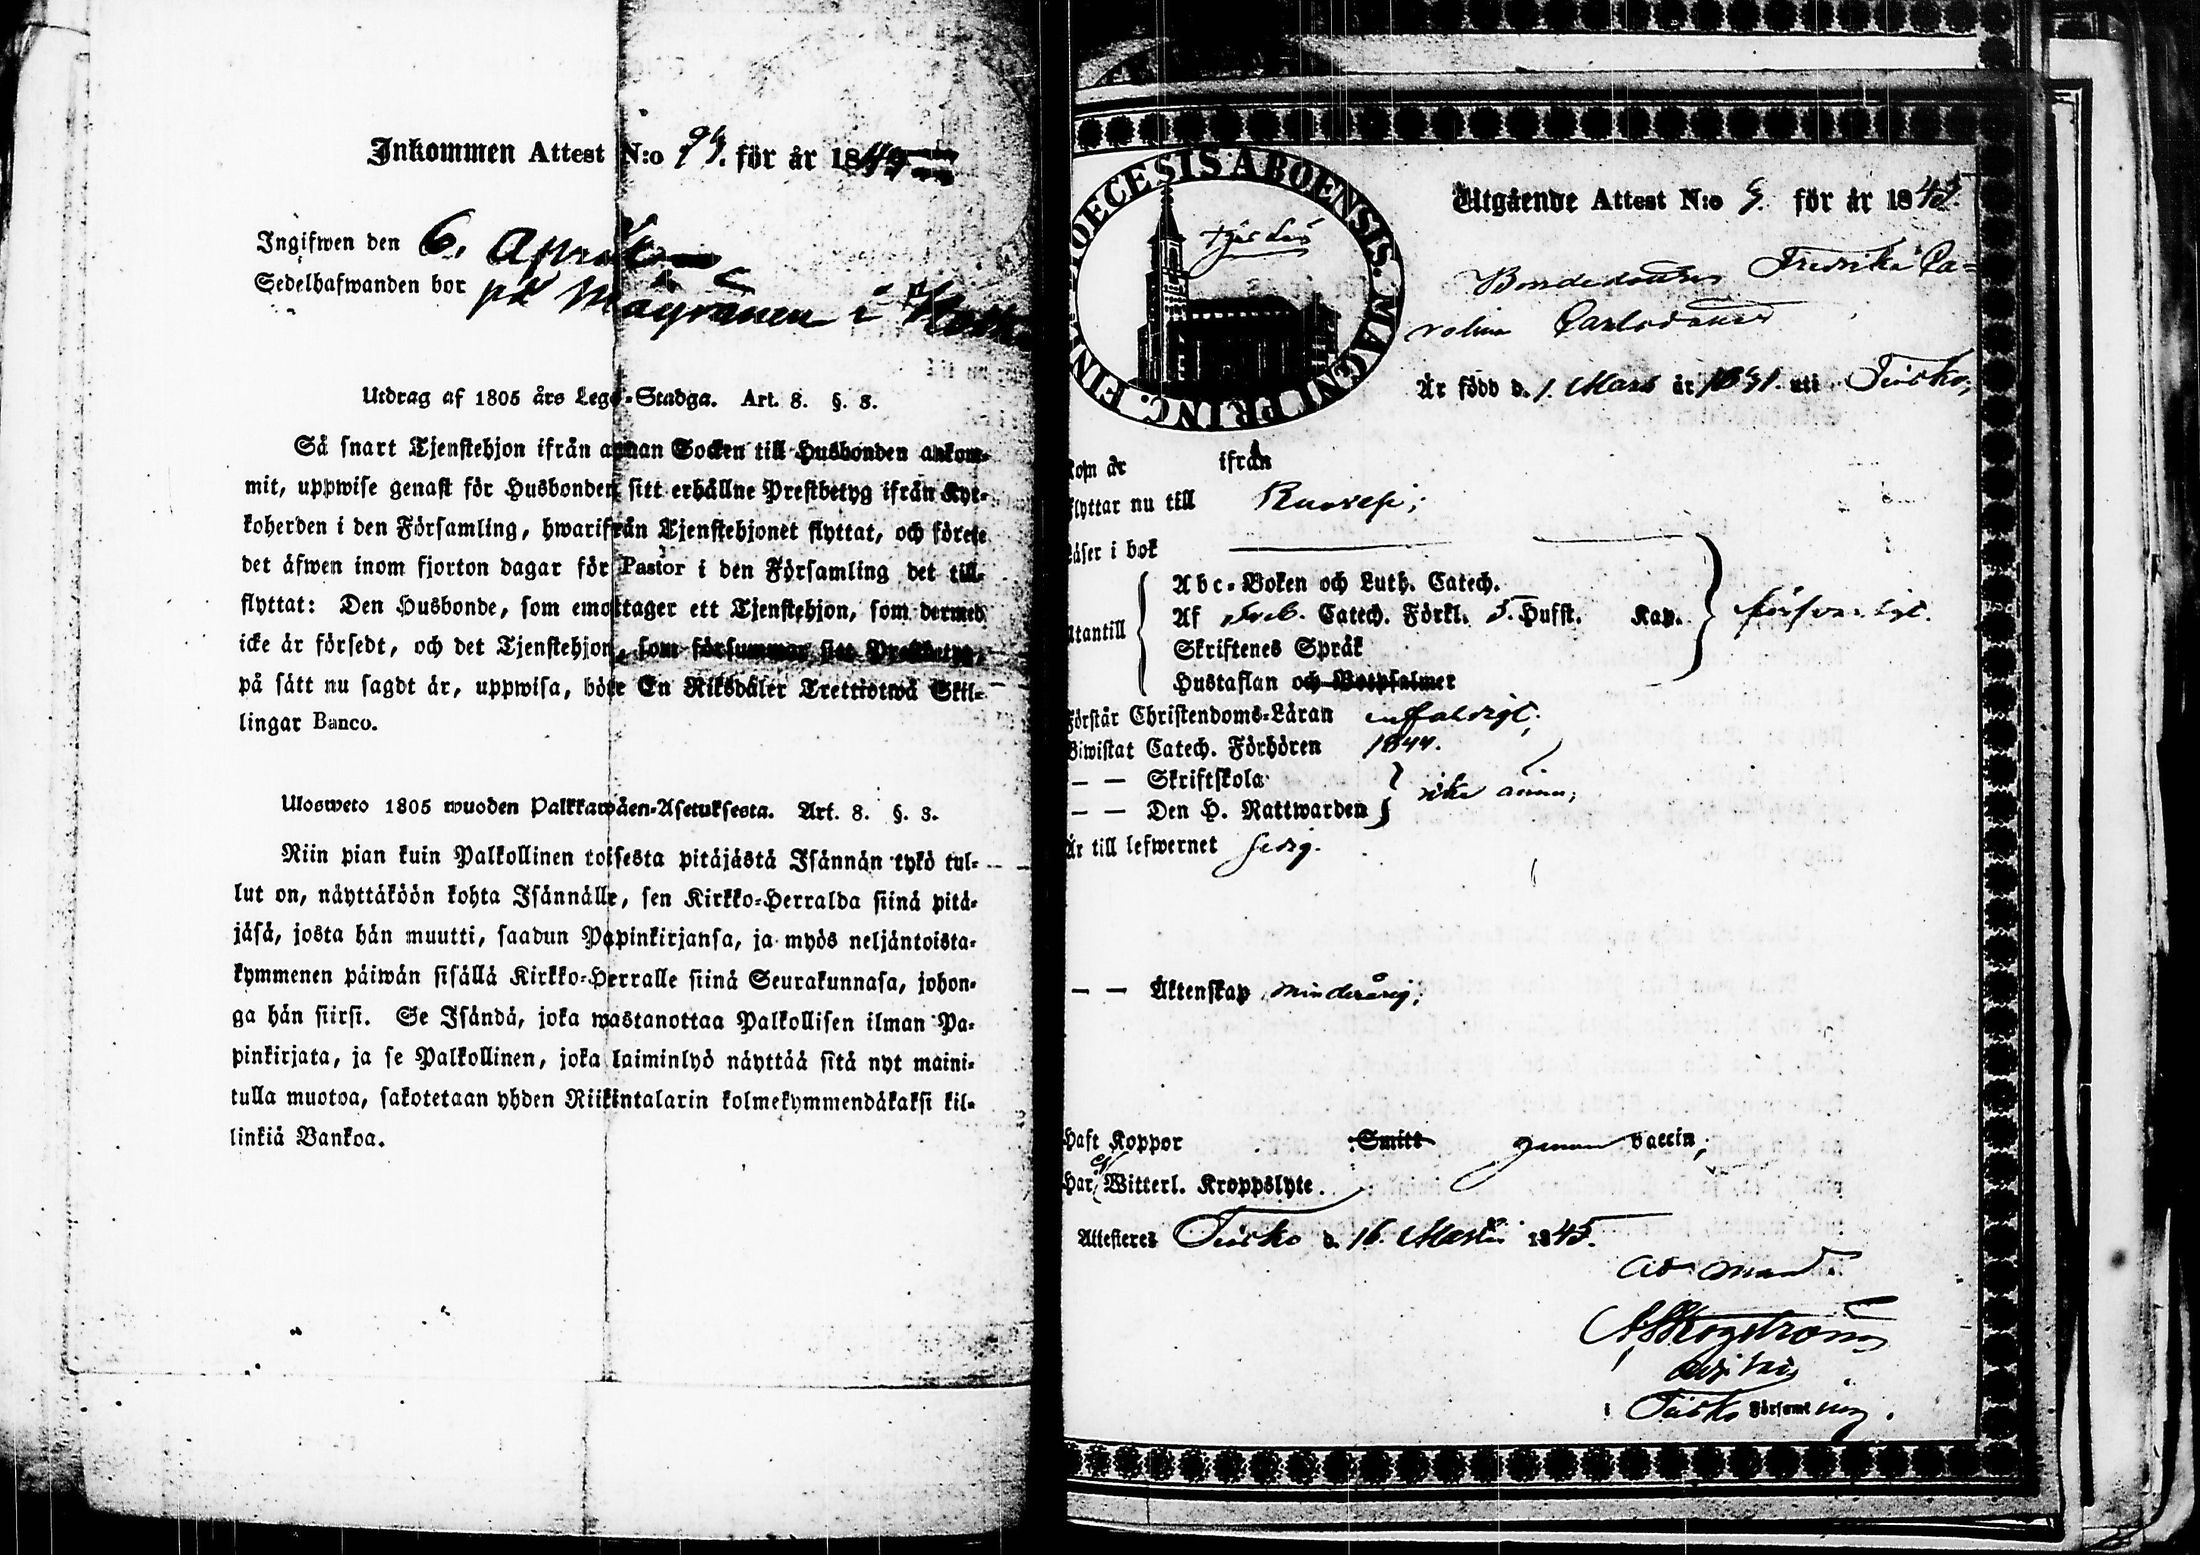 Inkommen Attest N:o för år 184
Ingifwen den 6. April
Sedelhafwanden bor på i
Utdrag af 1805 års Lego-Stadga. Art. 8. §. 8.
Så snart Tjenstehjon ifrån annan Socken till Husbonden ankom-
mit, uppwise genast för Husbonden sitt erhållne Prestbetyg ifrån Kyr-
koherden i den Församling, hwarifrån Tjenstehjonet flyttat, och förete
det äfwen inom fjorton dagar för Pastor i den Församling det till-
flyttat: Den Husbonde, som emottager ett Tjenstehjon, som dermed
icke är försedt, och det Tjenstehjon, som försummar sitt Prestbetyg,
på sätt nu sagdt är, uppwisa, böte En Riksdaler Trettiotwå Skil-
lingar Banco.
Ulosweto 1805 wuoden Palkkawäen-Asetuksesta. Art. 8. §. 8.
Niin pian kuin Palkollinen toisesta pitäjästä Isännän tykö tul-
lut on, näyttäköön kohta Isännälle, sen Kirkko-Herralda siinä pitä-
jäsä, josta hän muutti, saadun Papinkirjansa, ja myös neljäntoista-
kymmenen päiwän sisällä Kirkko-Herralle siinä Seurakunnasa, johon-
ga hän siirsi. Se Isändä, joka wastanottaa Palkollisen ilman Pa-
pinkirjata, ja se Palkollinen, joka laiminlyö näyttää sitä nyt maini-
tulla muotoa, sakotetaan yhden Riikintalarin kolmekymmendäkaksi kil-
linkiä Bankoa.
DIOECESIS ABOENSIS. MAGNI PRINC. FINL
Utgående Attest N:o för år 1845
Bondedottren Fredrika Ca-
rolina Carlsdotter
Är född d. 1. Mars år uti Tuisko,
kom år ifrån
flyttar nu till
Läser i bok
Abc-Boken och Luth. Catech.
Af Catech. Förkl. 5. Hufst. Kap. försvarligt.
Utantill
Skriftenes Språk
Hustaflan och Botpsalmer
Förstår Christendoms-Läran enfaldigt;
Biwistat Catech. Förhören 1844.
— — Skriftskola
— — Den H. Nattwarden icke ännu;
Är till lefwernet sedig.
— — Äktenskap minderårig;
Haft Koppor Smitt genom vaccin;
Har ej Witterl. Kroppslyte.
Attesteres Tuisko d. 16. Martii 1845.
i Tuisko Församling.